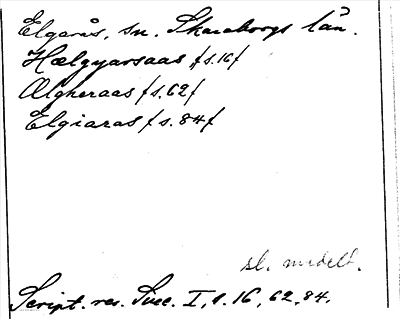 Elgarås, sn. Skaraborgs län.
Hælgyarsaas /s.16/
Ælgheraas /s.62/
Elgiaras /s.84/
sl. medelt.
Script. rer. Suec. I, s. 16, 62, 84.